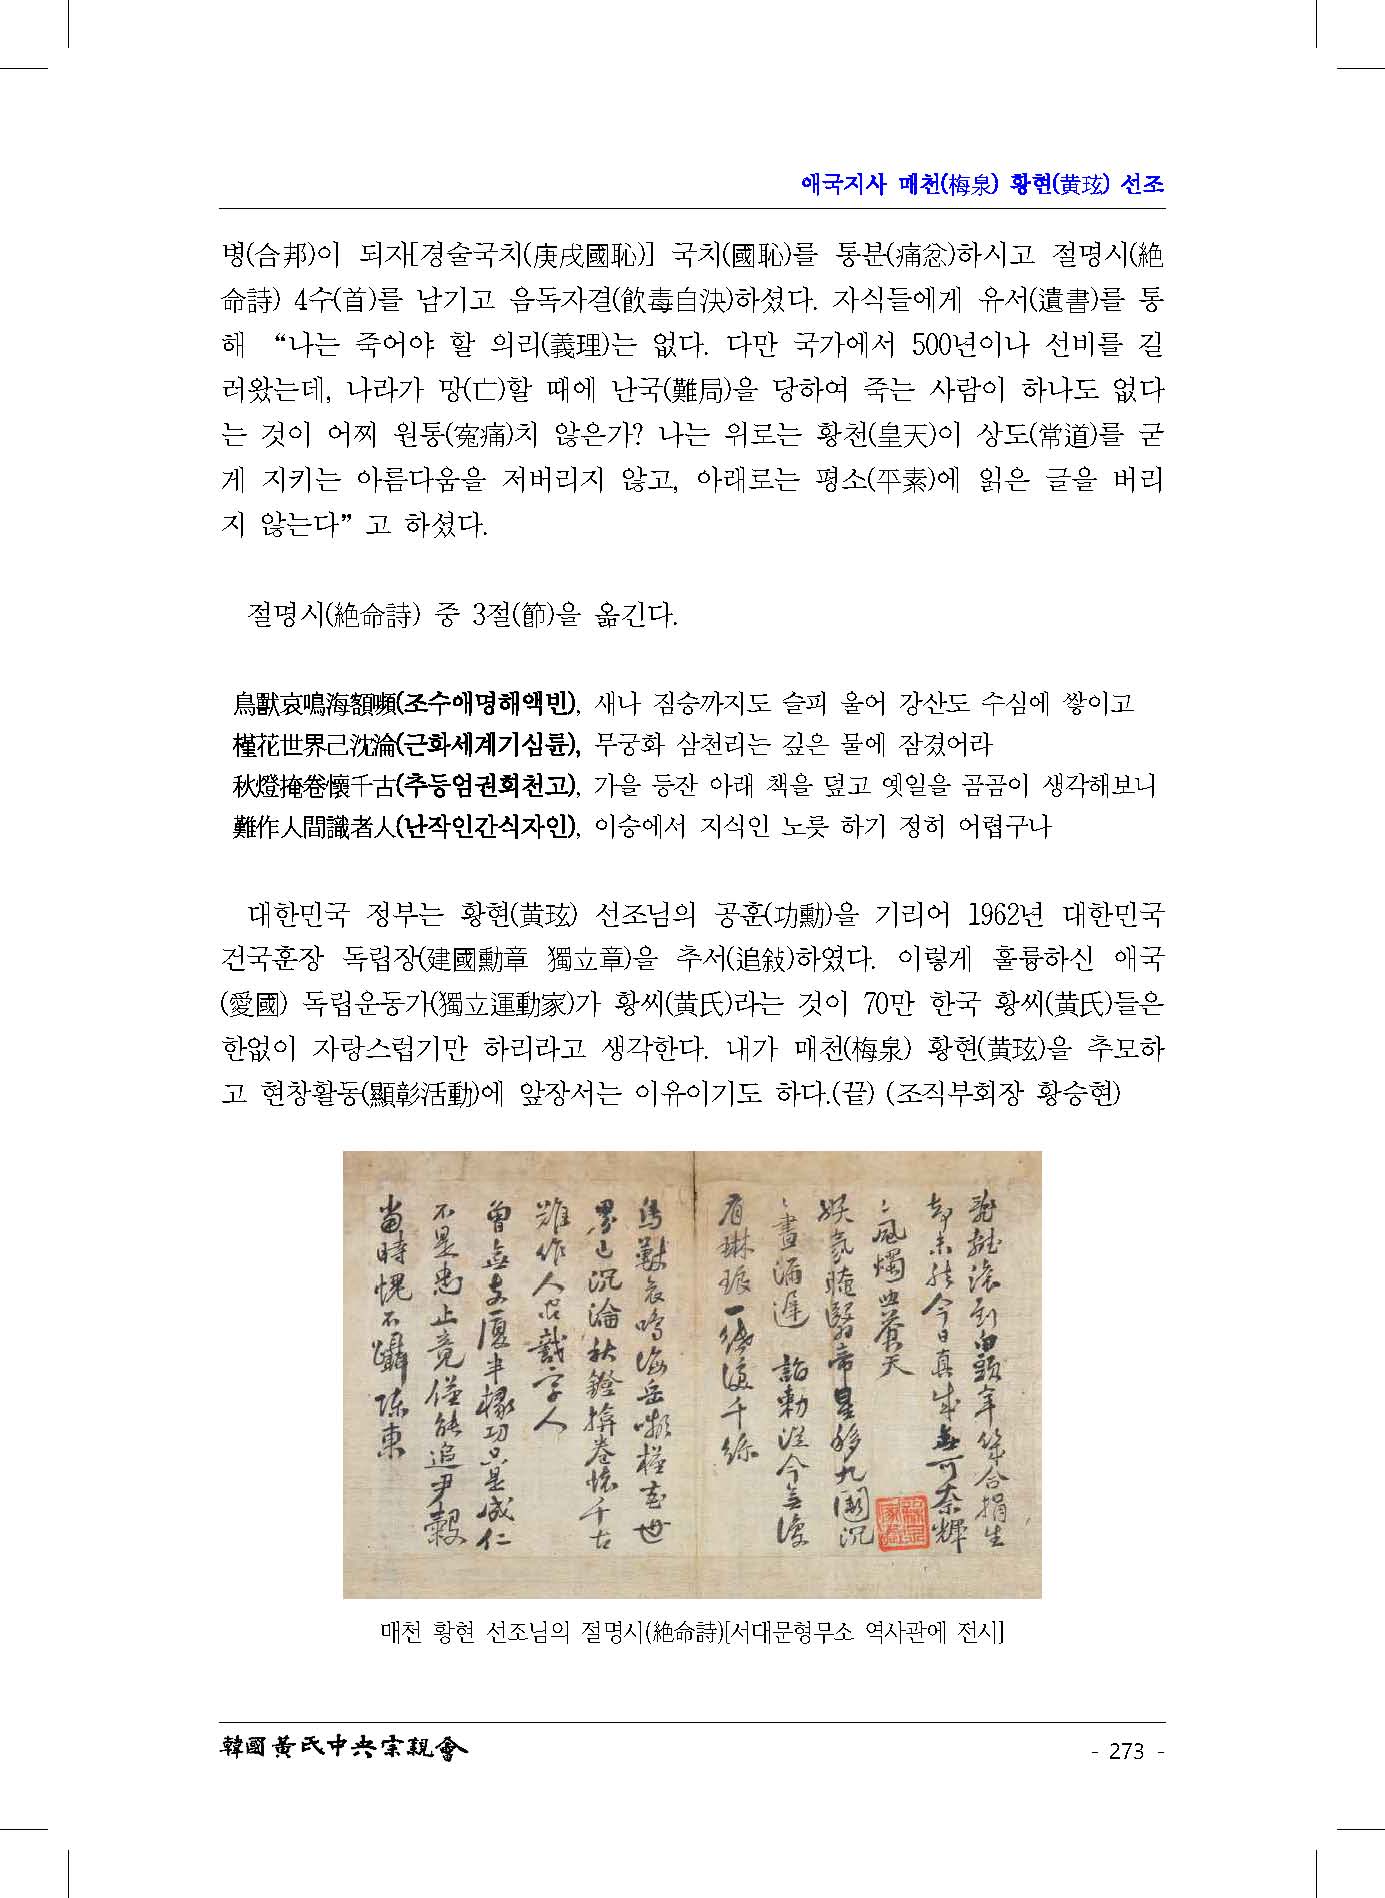 애국지사 매천(梅泉) 황현(黄玹) 선조
병(合邦)이 되자[경술국치(庚戌國恥)] 국치(國恥)를 통분(痛忿)하시고 절명시(絶
命詩) 4수(首)를 남기고 음독자결(飮毒自決)하셨다. 자식들에게 유서(遺書)를 통
해 “나는 죽어야 할 의리(義理)는 없다. 다만 국가에서 500년이나 선비를 길
러왔는데, 나라가 망(亡)할 때에 난국(難局)을 당하여 죽는 사람이 하나도 없다
는 것이 어찌 원통(寃痛)치 않은가? 나는 위로는 황천(皇天)이 상도(常道)를 굳
게 지키는 아름다움을 저버리지 않고, 아래로는 평소(平素)에 읽은 글을 버리
지 않는다”고 하셨다.
절명시(絶命詩) 중 3절(節)을 옮긴다.
鳥獸哀鳴海額嚬(조수애명해액빈), 새나 짐승까지도 슬피 울어 강산도 수심에 쌓이고
槿花世界己沈淪(근화세계기심륜), 무궁화 삼천리는 깊은 물에 잠겼어라
秋燈掩卷懷千古(추등엄권회천고), 가을 등잔 아래 책을 덮고 옛일을 곰곰이 생각해보니
難作人間識者人(난작인간식자인), 이승에서 지식인 노릇 하기 정히 어렵구나
대한민국 정부는 황현(黄玹) 선조님의 공훈(功勳)을 기리어 1962년 대한민국
건국훈장 독립장(建國勳章 獨立章)을 추서(追敍)하였다. 이렇게 훌륭하신 애국
(愛國) 독립운동가(獨立運動家)가 황씨(黄氏)라는 것이 70만 한국 황씨(黄氏)들은
한없이 자랑스럽기만 하리라고 생각한다. 내가 매천(梅泉) 황현(黄玹)을 추모하
고 현창활동(顯彰活動)에 앞장서는 이유이기도 하다.(끝) (조직부회장 황승현)
到白頭年幾合捐生
却未能今日真成無可奈輝
〻風燭照蒼天
妖氛晻翳帝星移九闕沉
〻晝漏遲 詔勅從今無復
有琳琅一紙淚千絲
鳥獸哀鳴海岳嚬槿花世
界已沉淪秋鐙揜卷懷千古
難作人間識字人
曾無支廈半椽功只是成仁
不是忠止竟僅能追尹穀
當時愧不躡陳東
매천 황현 선조님의 절명시(絶命詩)[서대문형무소 역사관에 전시]
韓國黃氏中央宗親會
- 273 -